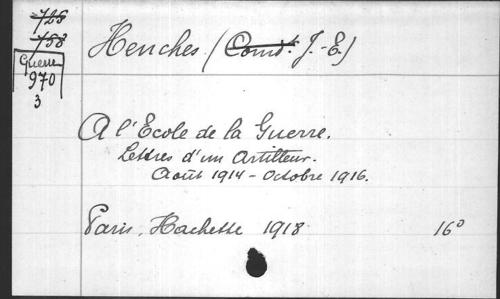 728
788
Guerre
970
3
Henches (Comdt. J.-E.)
A l'Ecole de la Guerre.
Lettres d'un Artilleur.
Août 1914 - Octobre 1916.
Paris, Hachette 1918 16°